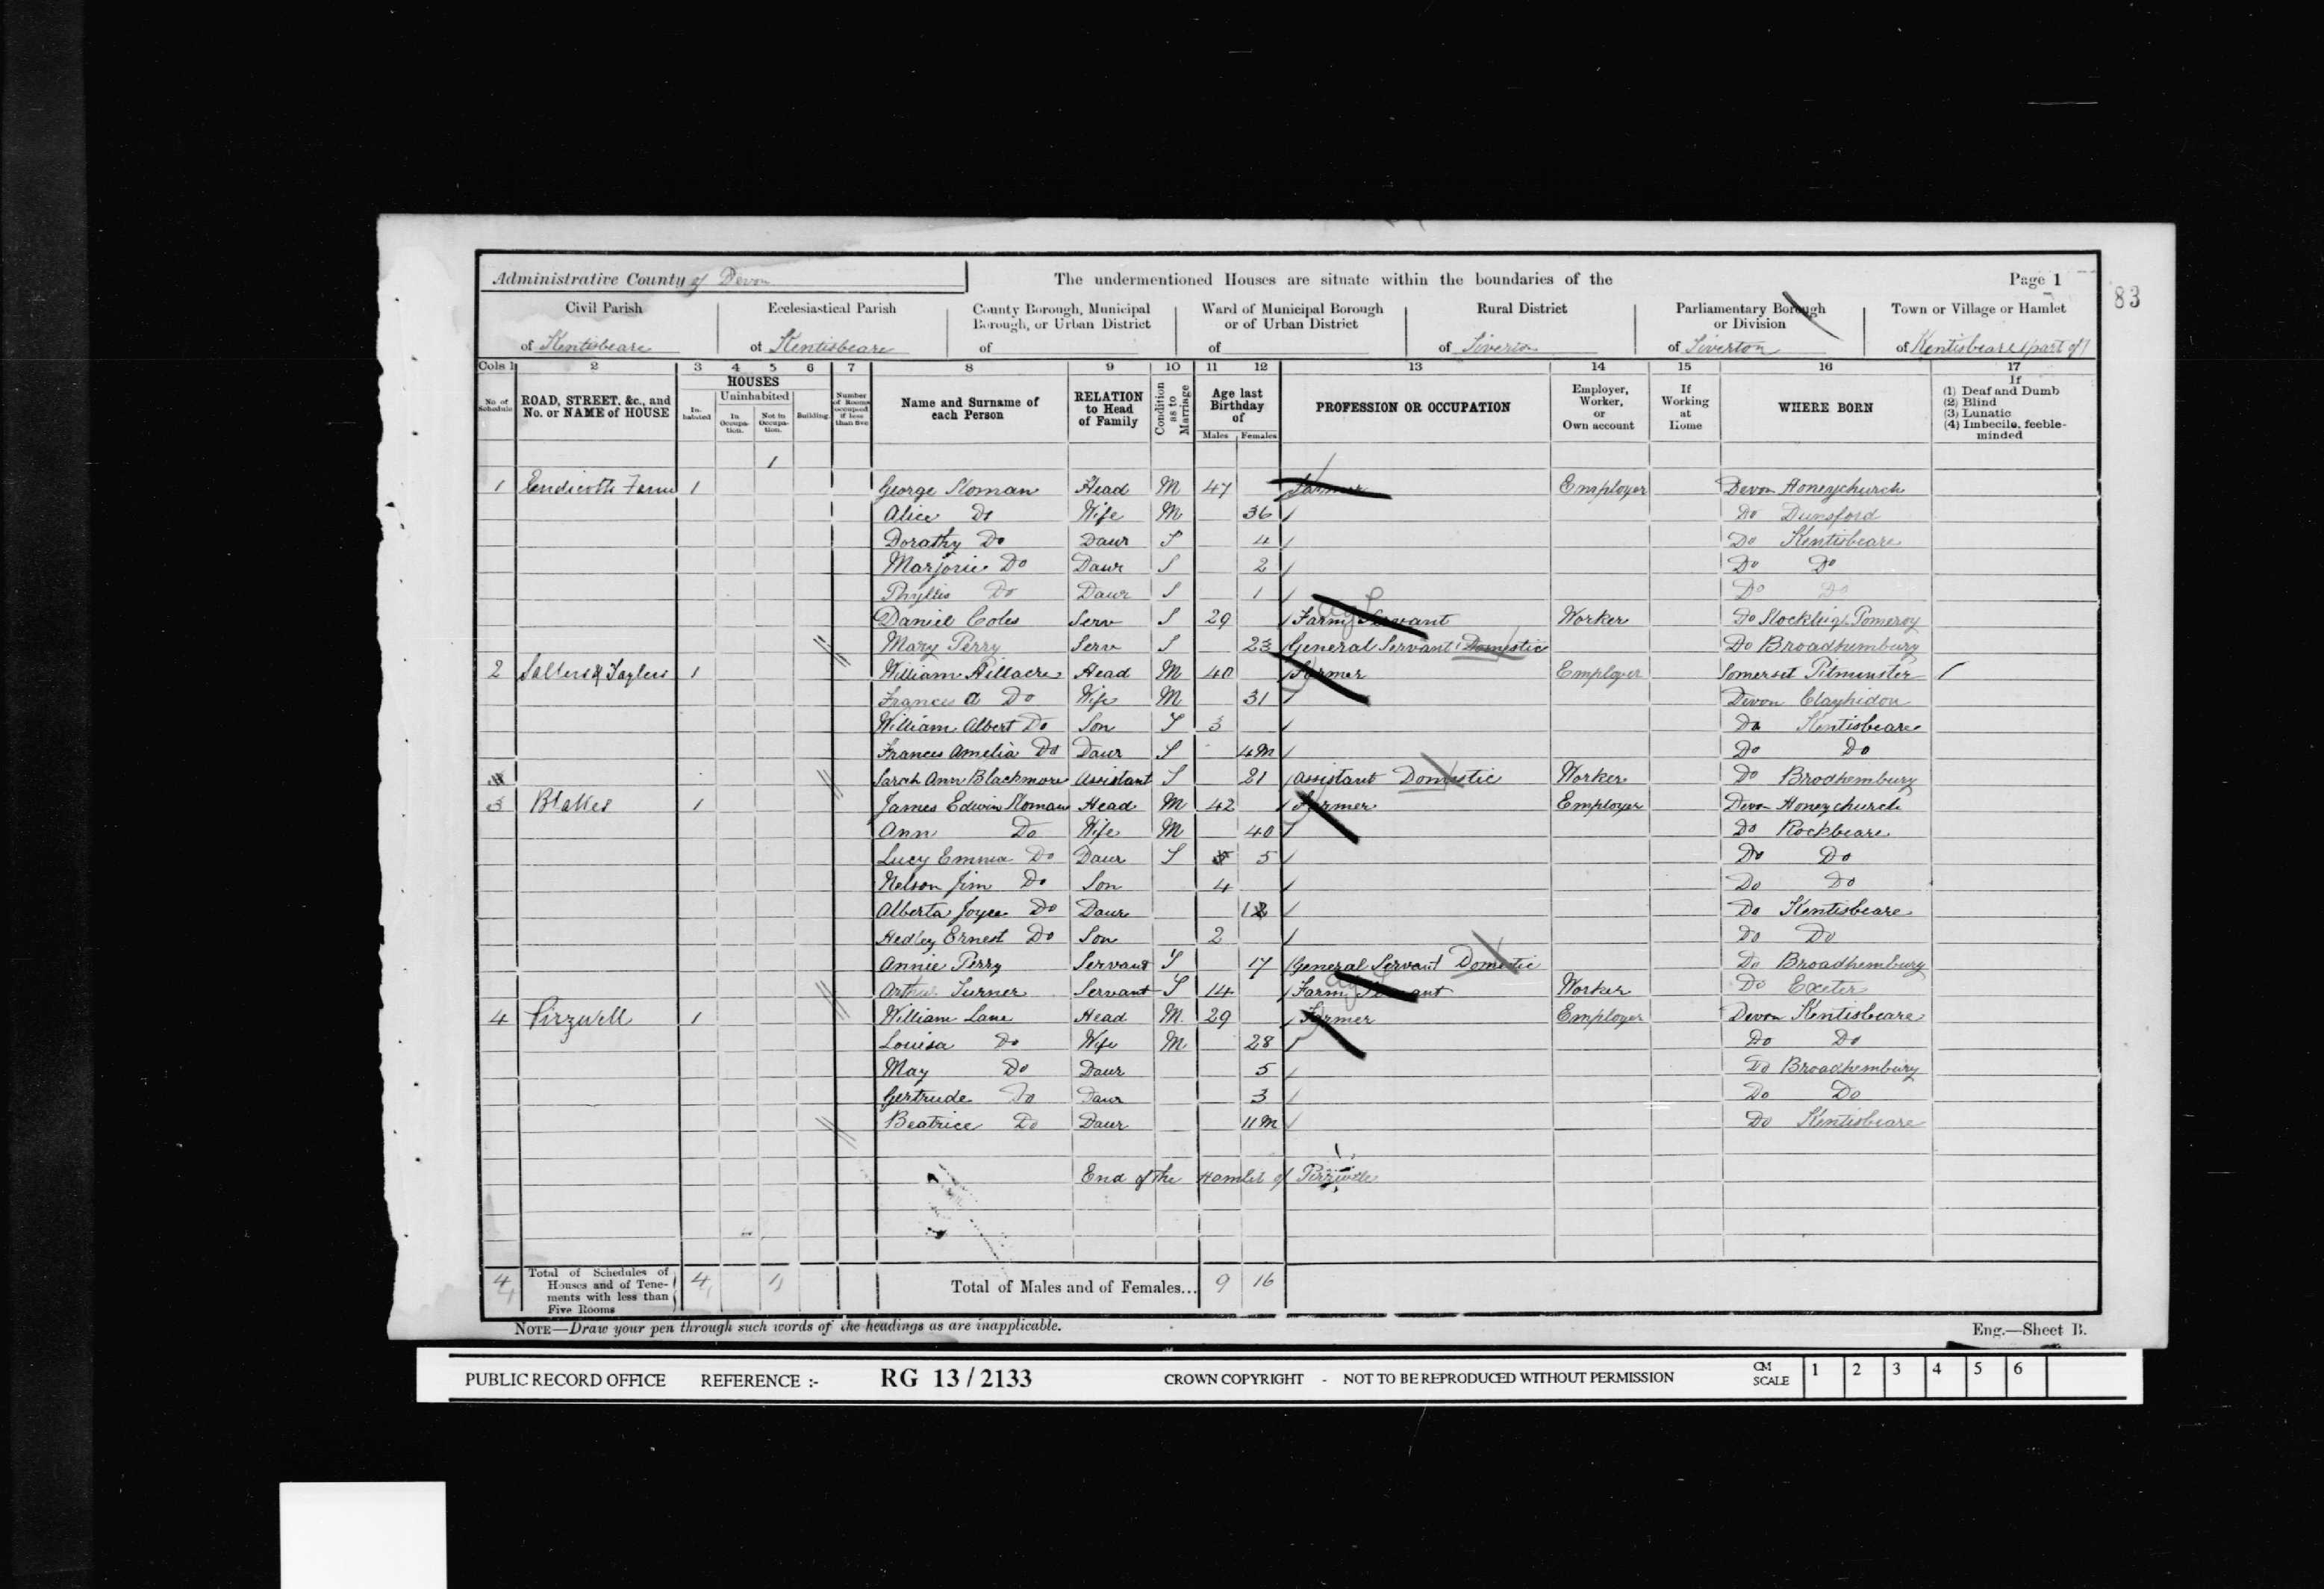 Administrative County of Devon
The undermentioned Houses are situate within the boundaries of the
Page 1
83
Civil Parish
of Kentisbeare
Ecclesiastical Parish
of Kentisbeare
County Borough, Municipal
Borough, or Urban District
of
Ward of Municipal Borough
or of Urban District
of
Rural District
of Tiverton
Parliamentary Borough
or Division
of Tiverton
Town or Village or Hamlet
of Kentisbeare (part of)
Cols 1 2 3 4 5 6 7 8 9 10 11 12 13 14 15 16 17
No of Schedule
ROAD, STREET, &c., and
No. or NAME of HOUSE
HOUSES
In-habited
Uninhabited
In Occupa-tion.
Not in Occupa-tion.
Building
Number of Rooms occupied if less than five
Name and Surname of
each Person
RELATION
to Head
of Family
Condition as to Marriage
Age last
Birthday
of
Males Females
PROFESSION OR OCCUPATION
Employer,
Worker,
or
Own account
If
Working
at
Home
WHERE BORN
If
(1) Deaf and Dumb
(2) Blind
(3) Lunatic
(4) Imbecile, feeble-
minded
1
1 Endicotts Farm 1 George Sloman Head M 47 Farmer Employer Devon Honeychurch
Alice Do Wife M 36 Do Dunsford
Dorathy Do Daur S 4 Do Kentisbeare
Marjorie Do Daur S 2 Do Do
Phyllis Do Daur S 1 Do Do
Daniel Coles Serv S 29 Farm Servant Worker Do Stockleigh Pomeroy
Mary Perry Serv S 23 General Servant Domestic Do Broadhembury
2 Salters & Taylers 1 William Hillacre Head M 40 Farmer Employer Somerset Pitminster
Frances A Do Wife M 31 Devon Clayhidon
William Albert Do Son S 3 Do Kentisbeare
Frances Amelia Do Daur S 4M Do Do
Sarah Ann Blackmore Assistant S 21 Assistant Domestic Worker Do Brodhembury
3 Blakes 1 James Edwin Sloman Head M 42 Farmer Employer Devon Honeychurch
Ann Do Wife M 40 Do Rockbeare
Lucy Emma Do Daur S 5 Do Do
Nelson Jim Do Son 4 Do Do
Alberta Joyce Do Daur Do Kentisbeare
Hedley Ernest Do Son 2 Do Do
Annie Perry Servant S 17 General Servant Domestic Do Broadhembury
Arthur Turner Servant S 14 Farm Servant Worker Do Exeter
4 Pirzwell 1 William Lane Head M 29 Farmer Employer Devon Kentisbeare
Louisa Do Wife M 28 Do Do
May Do Daur 5 Do Broadhembury
Gertrude Do Daur 3 Do Do
Beatrice Do Daur 11M Do Kentisbeare
End of the Hamlet of Pirzwell
4 Total of Schedules of
Houses and of Tene-
ments with less than
Five Rooms
4 1 Total of Males and of Females... 9 16
NOTE—Draw your pen through such words of the headings as are inapplicable.
Eng.—Sheet B.
PUBLIC RECORD OFFICE REFERENCE :- RG 13/2133 CROWN COPYRIGHT - NOT TO BE REPRODUCED WITHOUT PERMISSION CM SCALE 1 2 3 4 5 6